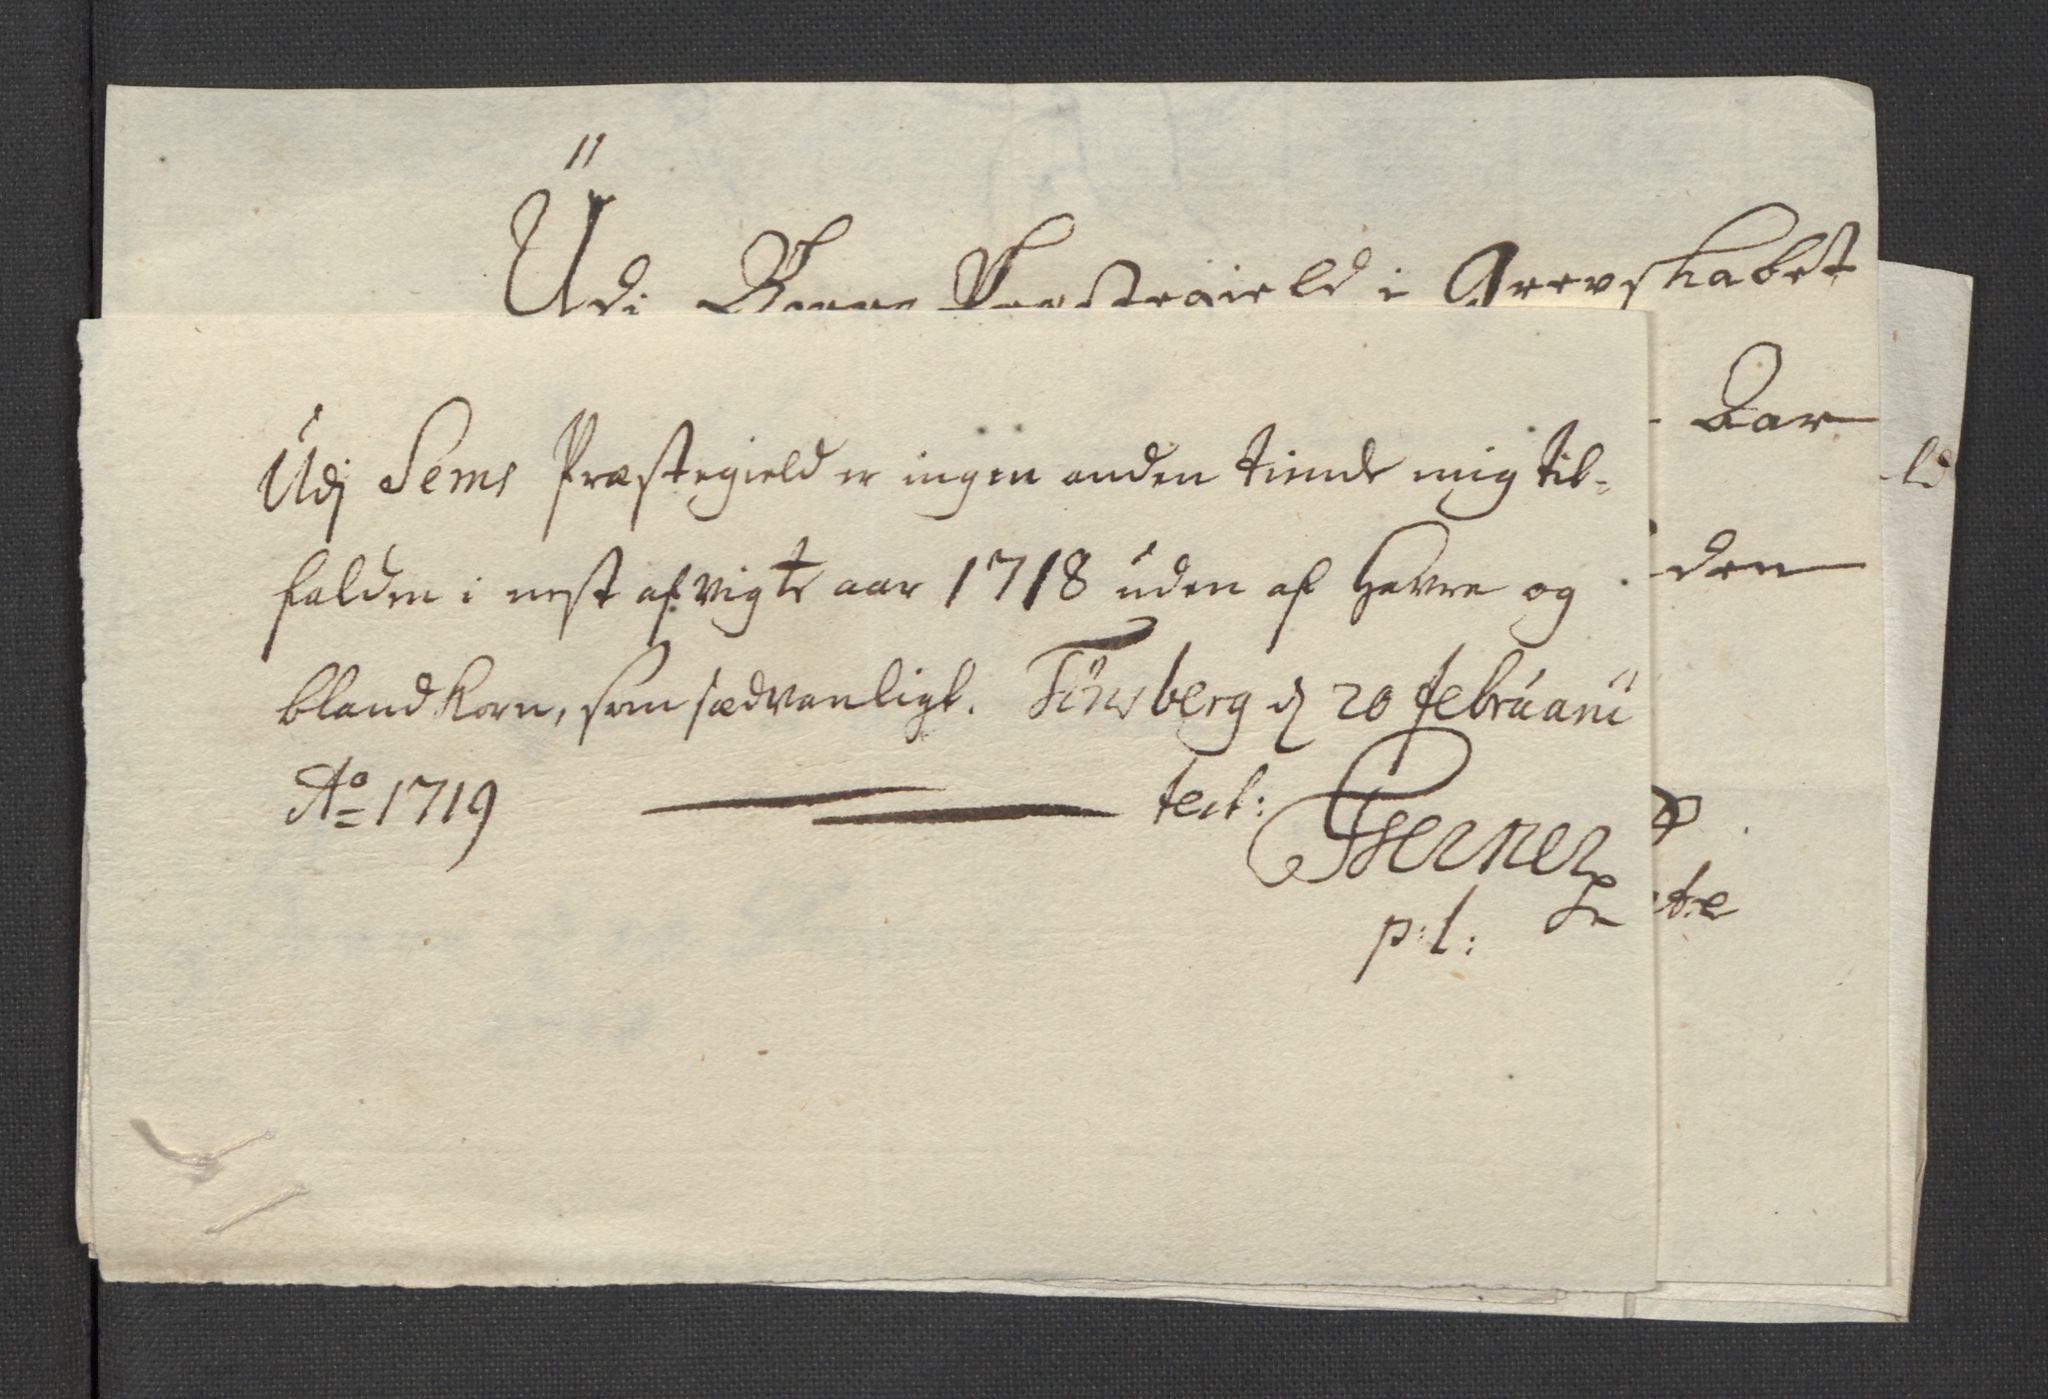 Udi Borre Præstegield i Grevskabet
Aar
ld
den
Udj Sems Præstegield er ingen anden tiende mig til=
falden i nest afvigte aar 1718 uden af Havre og
bland Korn, som sædvanligt. Tönsberg d 20 februarii
Ao 1719 test:
p: l:
te